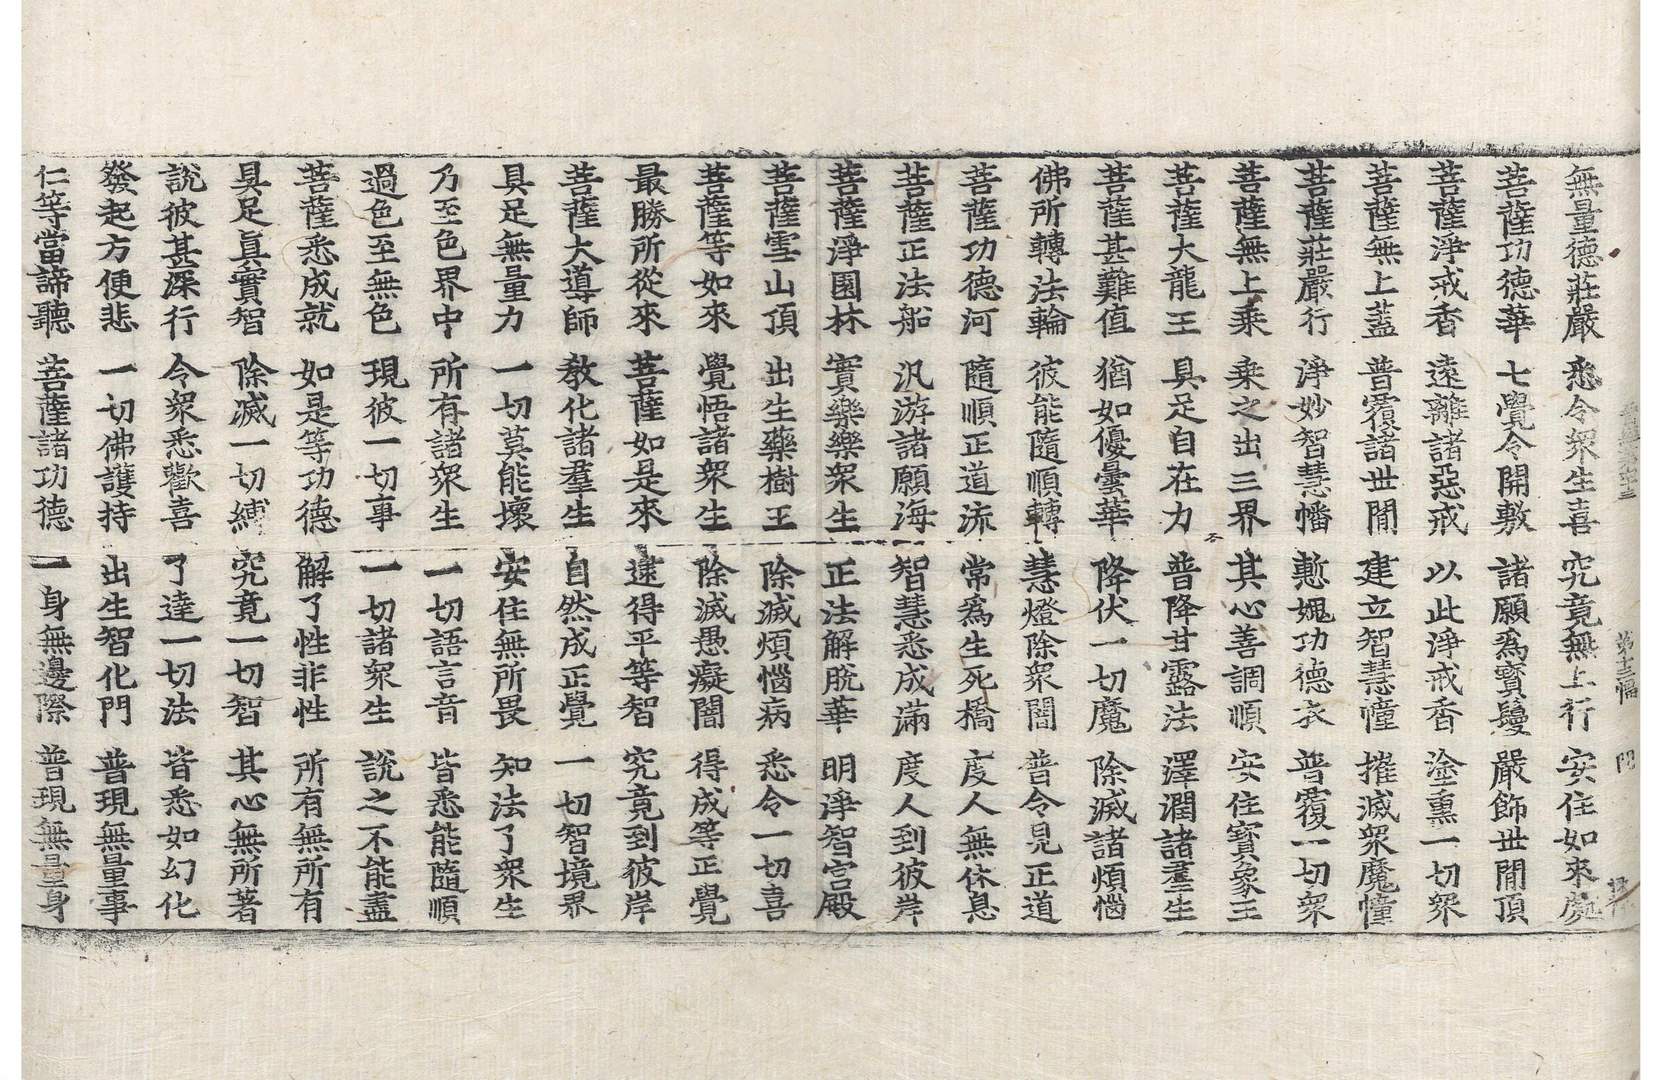 無量德莊嚴 悉令衆生喜 究竟無上行 安住如來處
菩薩功德華 七覺令開敷 諸願爲寶鬘 嚴飾世閒頂
菩薩淨戒香 遠離諸惡戒 以此淨戒香 塗熏一切衆
菩薩無上蓋 普覆諸世閒 建立智慧幢 摧滅衆魔幢
菩薩莊嚴行 淨妙智慧幡 慙愧功德衣 普覆一切衆
菩薩無上乘 乘之出三界 其心善調順 安住寶象王
菩薩大龍王 具足自在力 普降甘露法 澤潤諸羣生
菩薩甚難值 猶如優曇華 降伏一切魔 除滅諸煩惱
佛所轉法輪 彼能隨順轉 慧燈除衆闇 普令見正道
菩薩功德河 隨順正道流 常爲生死橋 度人無休息
菩薩正法船 汎游諸願海 智慧悉成滿 度人到彼岸
菩薩淨園林 實樂樂衆生 正法解脫華 明淨智宮殿
菩薩雪山頂 出生藥樹王 除滅煩惱病 悉令一切喜
菩薩等如來 覺悟諸衆生 除滅愚癡闇 得成等正覺
最勝所從來 菩薩如是來 逮得平等智 究竟到彼岸
菩薩大導師 敎化諸羣生 自然成正覺 一切智境界
具足無量力 一切莫能壞 安住無所畏 知法了衆生
乃至色界中 所有諸衆生 一切語言音 皆悉能隨順
過色至無色 現彼一切事 一切諸衆生 說之不能盡
菩薩悉成就 如是等功德 解了性非性 所有無所有
具足眞實智 除滅一切縛 究竟一切智 其心無所著
說彼甚深行 令衆悉歡喜 了達一切法 皆悉如幻化
發起方便悲 一切佛護持 出生智化門 普現無量事
仁等當諦聽 菩薩諸功德 一身無邊際 普現無量身